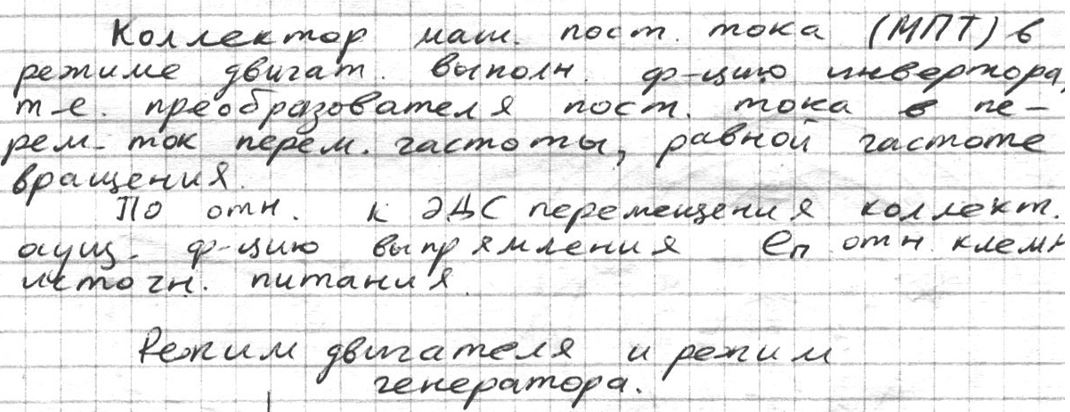 Коллектор маш. пост. тока (МПТ) в
режиме двигат. выполн. ф-цию инвертора,
т-е. преобразователя пост. тока в пе-
рем. ток перем. частоты, равной частоте
вращения.
По отн. к ЭДС перемещения коллект.
осущ. ф-цию выпрямления eп отн. клемм
источн. питания.
Режим двигателя и режим
генератора.